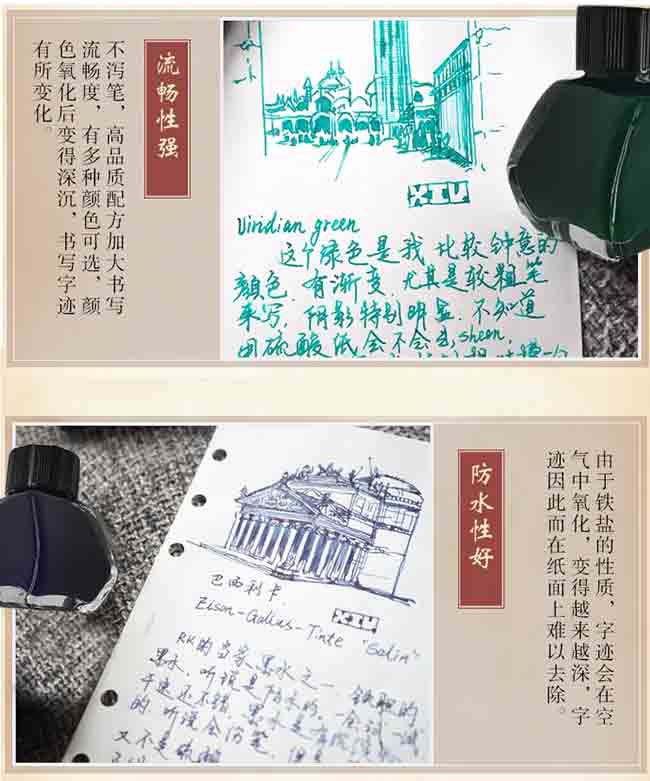 流畅性强
不泻笔，高品质配方加大书写
流畅度，有多种颜色可选，颜
色氧化后变得深沉，书写字迹
有所变化。
XIV
Viridian green
这个绿色是我比较钟意的
颜色，有渐变，尤其是较粗笔
来写，阴影特别明显，不知道
用硫酸纸会不会出sheen,
防水性好
由于铁盐的性质，字迹会在空
气中氧化，变得越来越深，字
迹因此而在纸面上难以去除。
巴西利卡
XIV
Eisen-Gallus-Tinte "Salix"
RK的当家墨水之一，铁胆的
墨水，听说是防水的，一会试一试
干速还不错，墨水是有
的，听说会伤笔，但
又不是硫酸